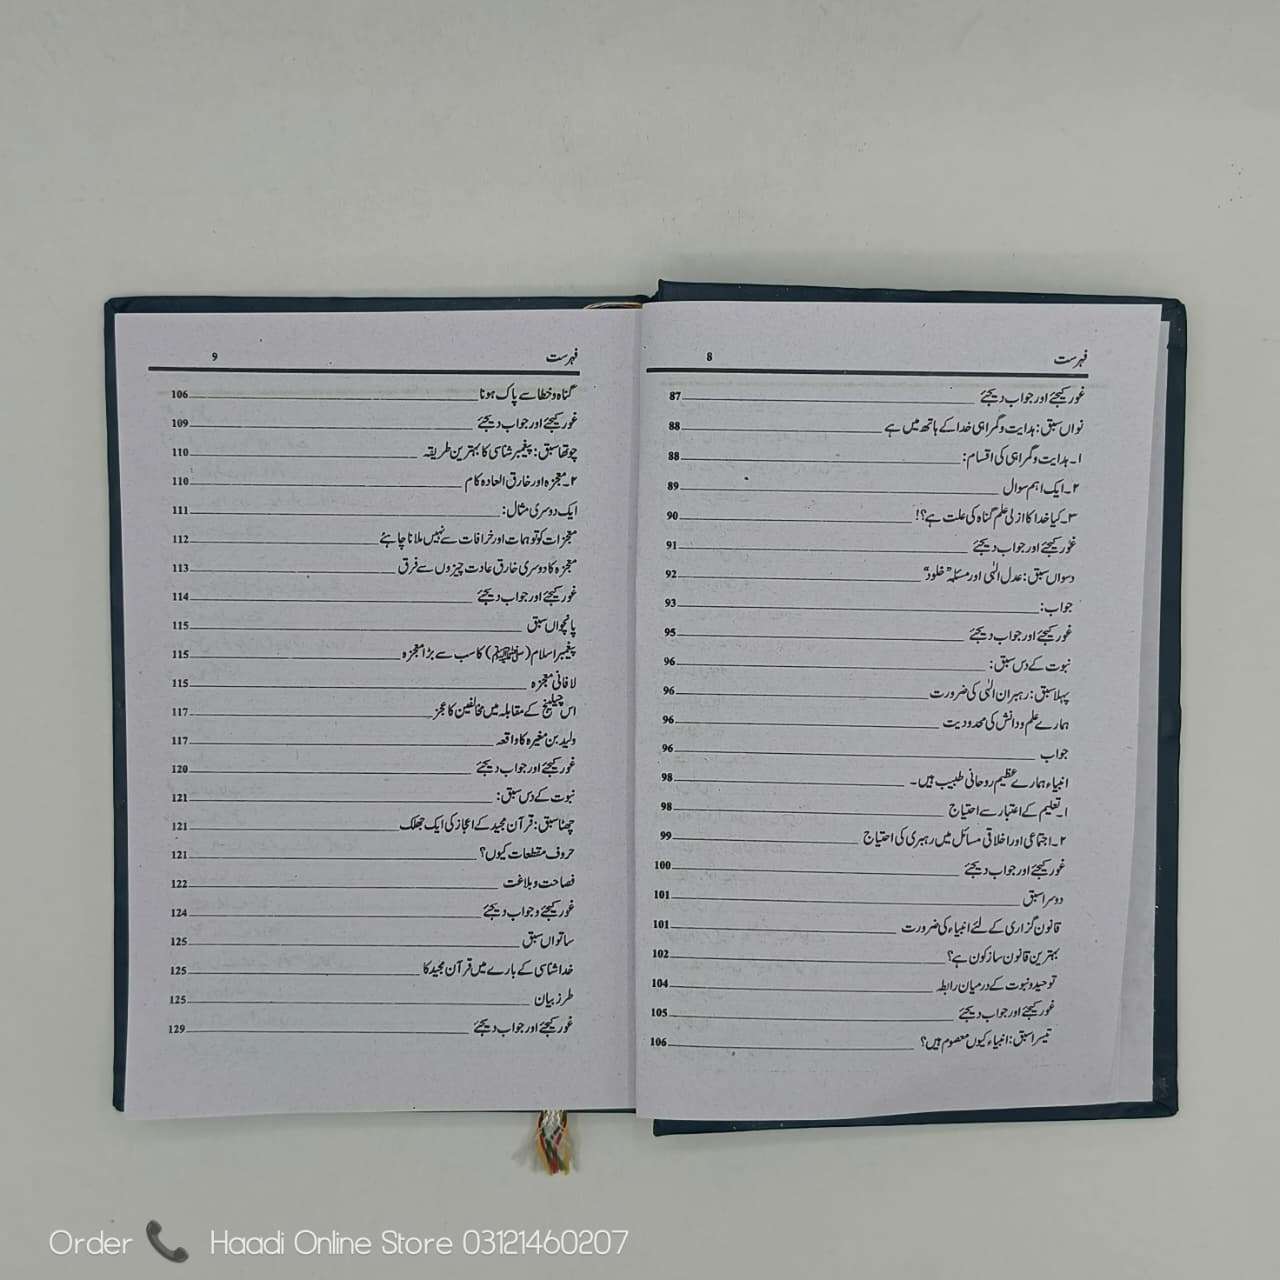 فہرست 8
غور کیجئے اور جواب دیجئے 87
نواں سبق: ہدایت و گمراہی خدا کے ہاتھ میں ہے 88
۱۔ ہدایت و گمراہی کی اقسام: 88
۲۔ ایک اہم سوال 89
۳۔ کیا خدا کا ازلی علم گناہ کی علت ہے؟! 90
غور کیجئے اور جواب دیجئے 91
دسواں سبق: عدل الٰہی اور مسئلہ ”خلود“ 92
جواب: 93
غور کیجئے اور جواب دیجئے 95
نبوت کے دس سبق: 96
پہلا سبق: رہبران الٰہی کی ضرورت 96
ہمارے علم و دانش کی محدودیت 96
جواب 96
انبیاء ہمارے عظیم روحانی طبیب ہیں۔ 98
۱۔ تعلیم کے اعتبار سے احتیاج 98
۲۔ اجتماعی اور اخلاقی مسائل میں رہبری کی احتیاج 99
غور کیجئے اور جواب دیجئے 100
دوسرا سبق 101
قانون گزاری کے لئے انبیاء کی ضرورت 101
بہترین قانون ساز کون ہے؟ 102
توحید و نبوت کے درمیان رابطہ 104
غور کیجئے اور جواب دیجئے 105
تیسرا سبق: انبیاء کیوں معصوم ہیں؟ 106
فہرست 9
گناہ و خطا سے پاک ہونا 106
غور کیجئے اور جواب دیجئے 109
چوتھا سبق: پیغمبر شناسی کا بہترین طریقہ 110
۲۔ معجزہ اور خارق العادہ کام 110
ایک دوسری مثال: 111
معجزات کو توہمات اور خرافات سے نہیں ملانا چاہئے 112
معجزہ کا دوسری خارق عادت چیزوں سے فرق 113
غور کیجئے اور جواب دیجئے 114
پانچواں سبق 115
پیغمبر اسلام (ﷺ) کا سب سے بڑا معجزہ 115
لافانی معجزہ 115
اس چیلنج کے مقابلہ میں مخالفین کا عجز 117
ولید بن مغیرہ کا واقعہ 117
غور کیجئے اور جواب دیجئے 120
نبوت کے دس سبق: 121
چھٹا سبق: قرآن مجید کے اعجاز کی ایک جھلک 121
حروف مقطعات کیوں؟ 121
فصاحت و بلاغت 122
غور کیجئے و جواب دیجئے 124
ساتواں سبق 125
خدا شناسی کے بارے میں قرآن مجید کا 125
طرز بیان 125
غور کیجئے اور جواب دیجئے 129
Order Haadi Online Store 03121460207